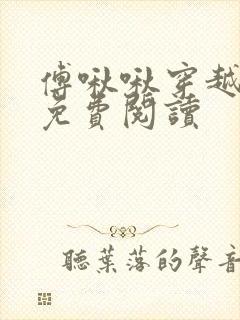 傅啾啾穿越
免費閱讀
聽葉落的聲音